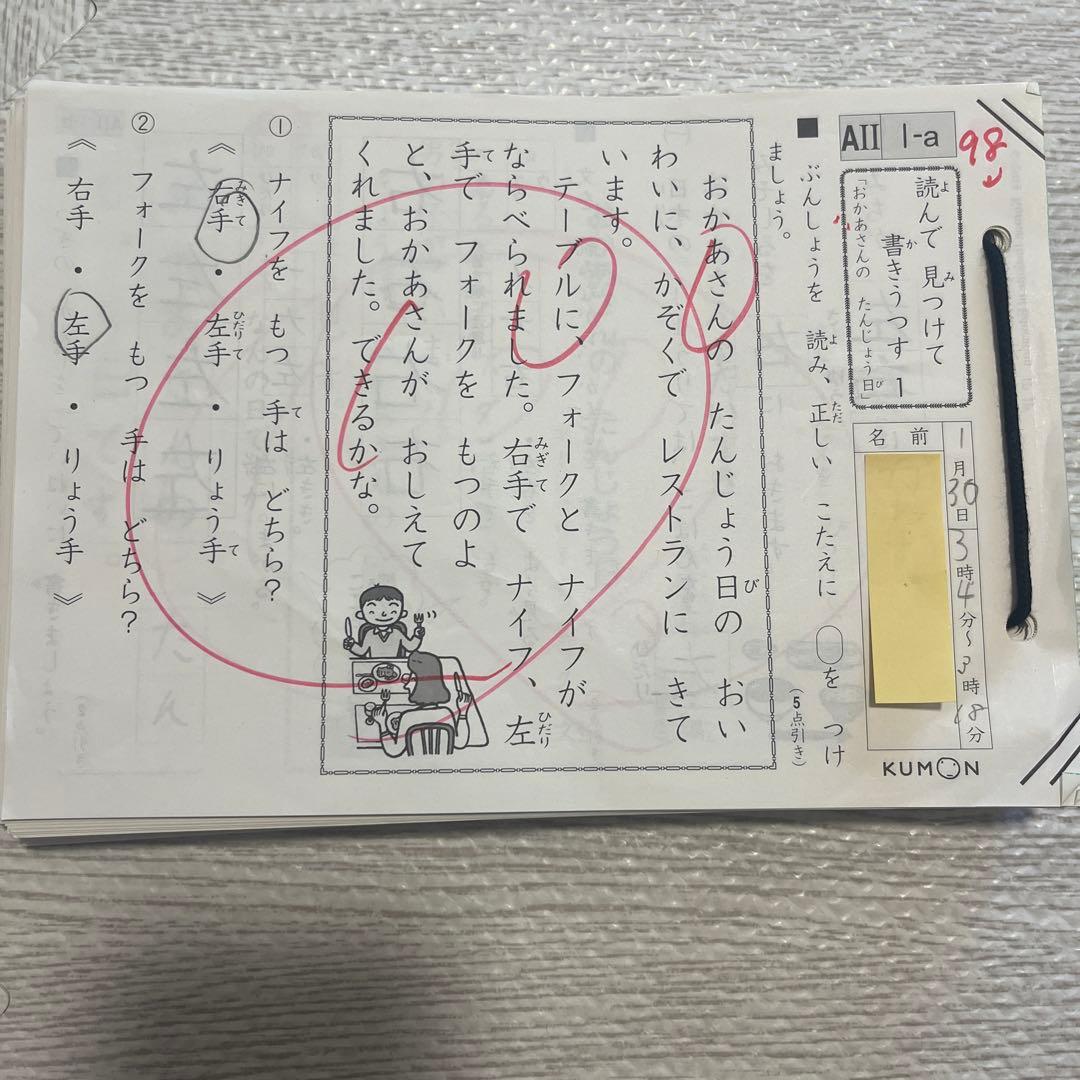 98
AII 1-a
読んで 見つけて
書きうつす 1
「おかあさんの たんじょう日」
名前
1月30日 3時4分〜3時18分
KUMON
■ ぶんしょうを 読み、正しい こたえに ○を つけ
ましょう。
(5点引き)
おかあさんの たんじょう日の おい
わいに、かぞくで レストランに きて
います。
テーブルに、フォークと ナイフが
ならべられました。右手で ナイフ、左
手で フォークを もつのよ
と、おかあさんが おしえて
くれました。できるかな。
① ナイフを もつ 手は どちら?
《 右手 ・ 左手 ・ りょう手 》
② フォークを もつ 手は どちら?
《 右手 ・ 左手 ・ りょう手 》